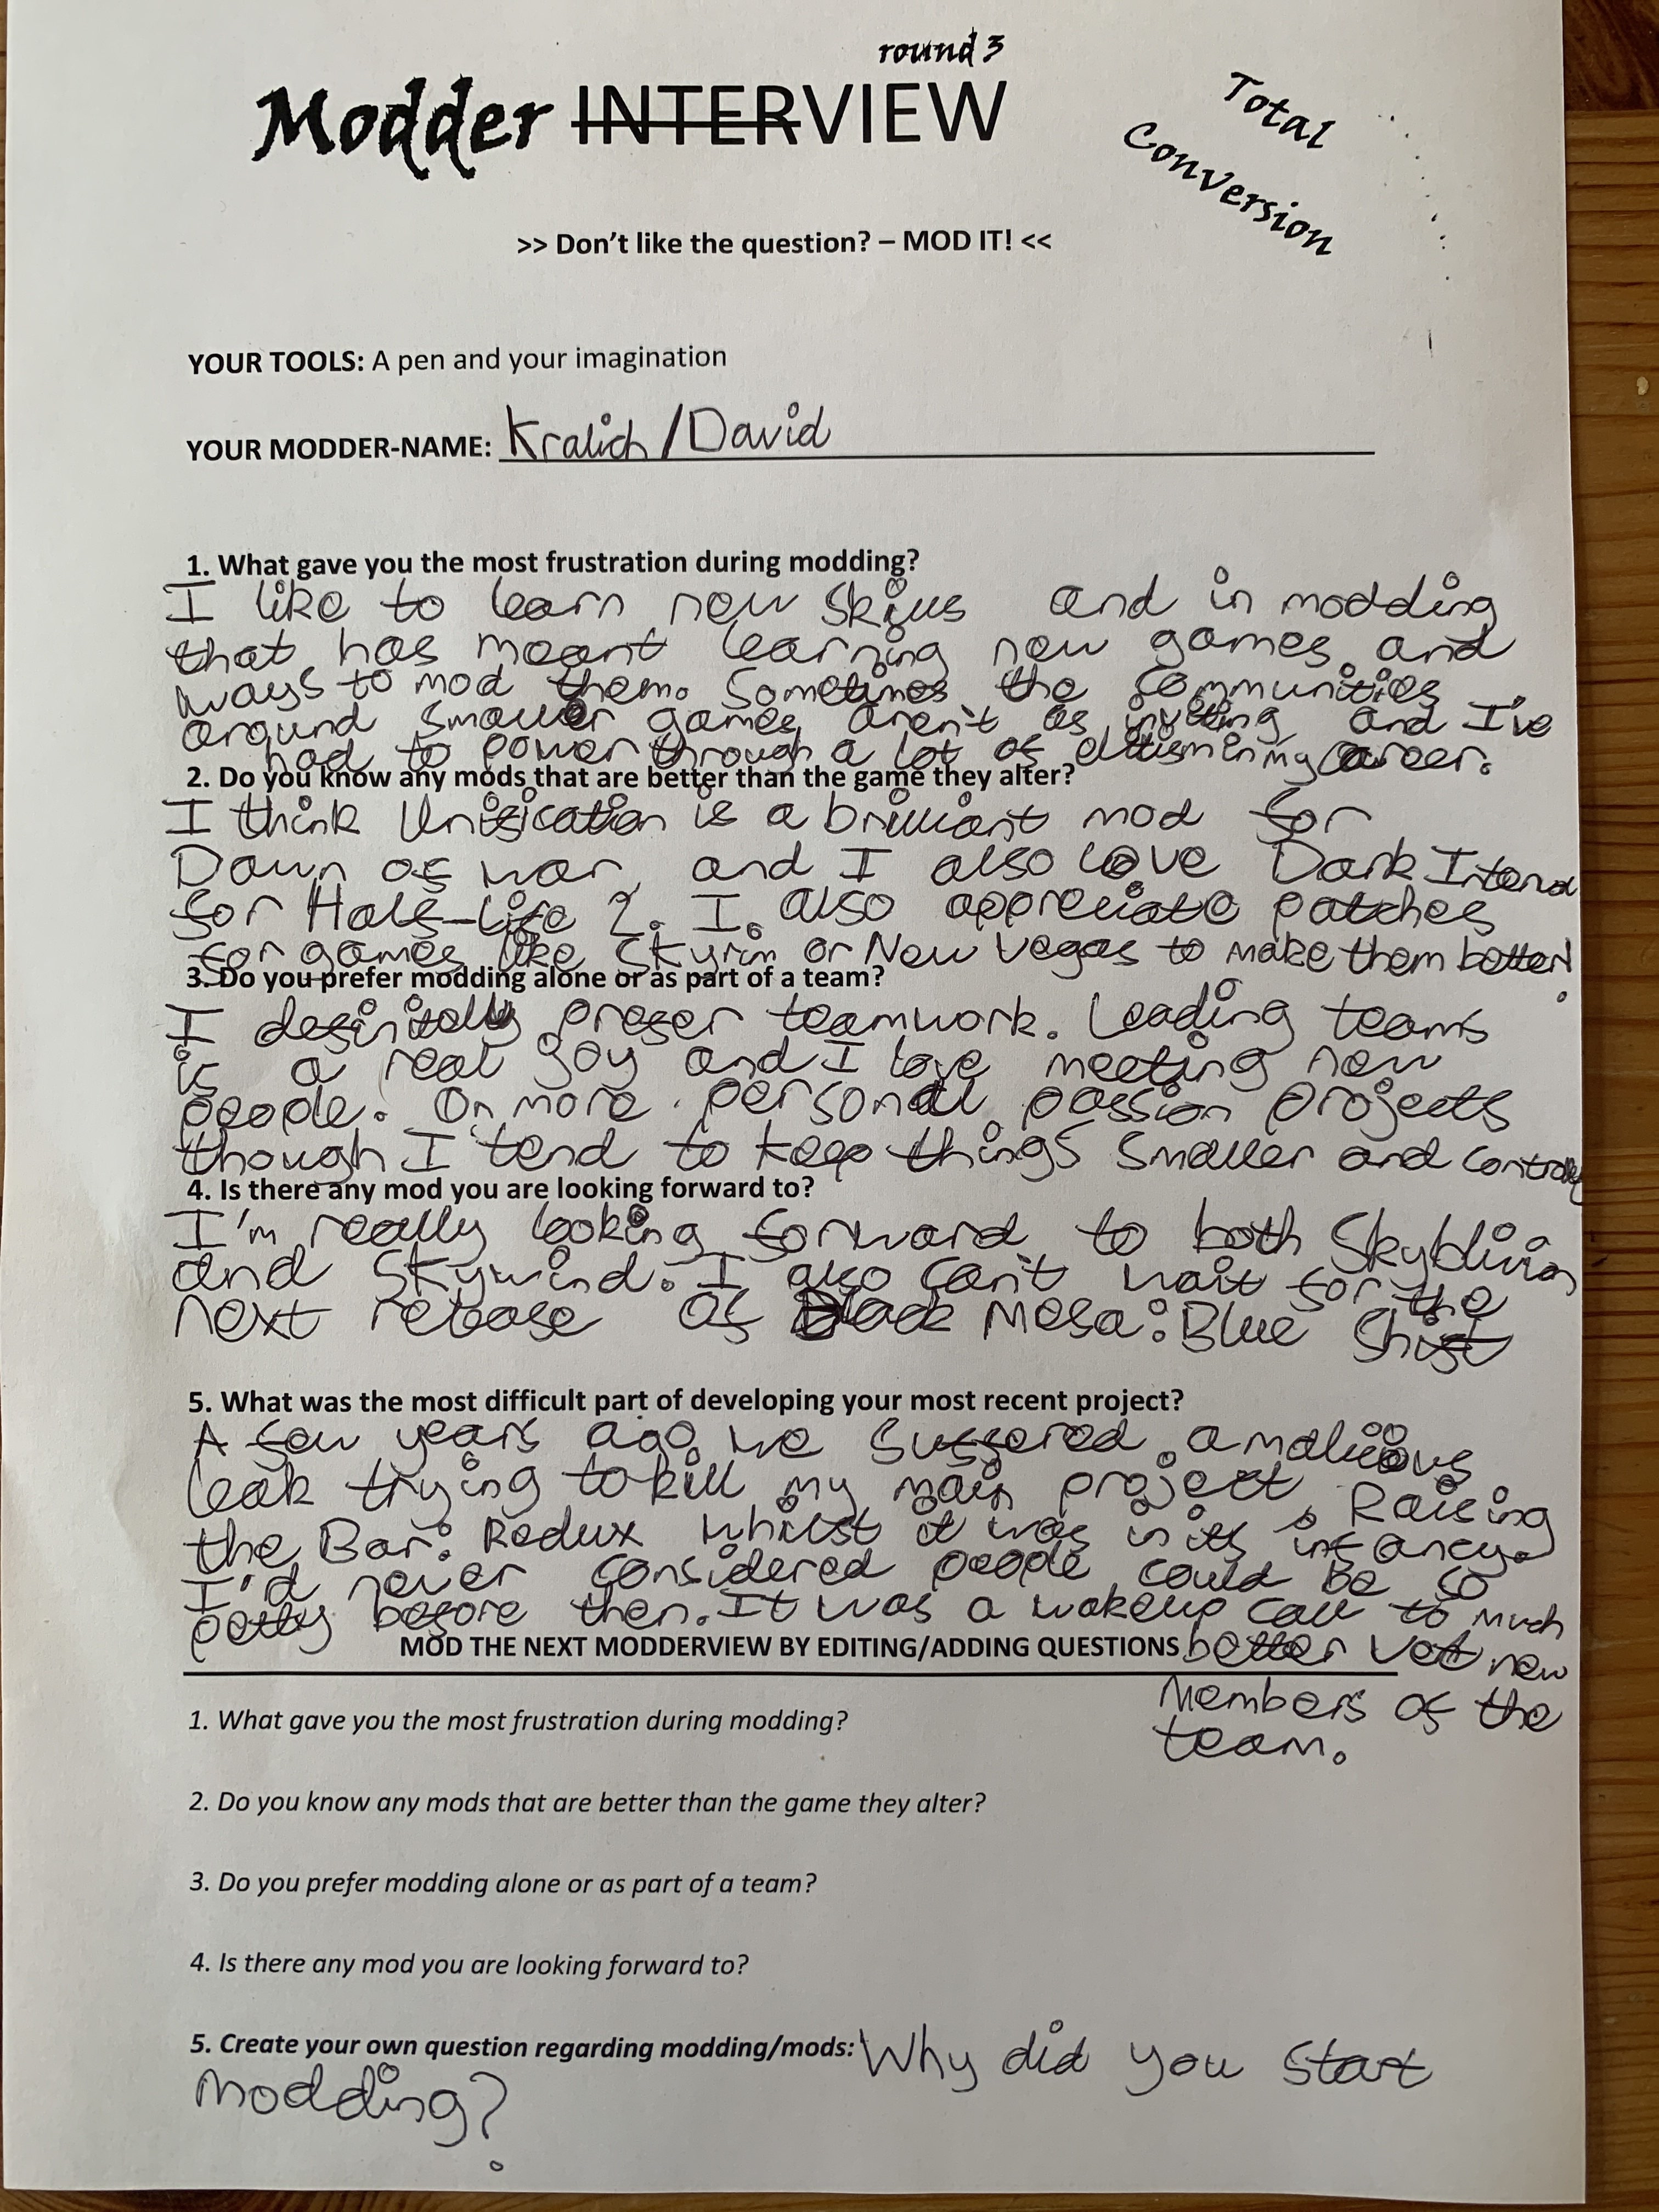 round 3
Modder INTERVIEW
Total
Conversion
>> Don't like the question? – MOD IT! <<
YOUR TOOLS: A pen and your imagination
YOUR MODDER-NAME: Kralich / David
1. What gave you the most frustration during modding?
I like to learn new skills and in modding
that has meant learning new games and
ways to mod them. Sometimes the communities
around smaller games aren't as inviting and I've
had to power through a lot of elitism in my career.
2. Do you know any mods that are better than the game they alter?
I think Unification is a brilliant mod for
Dawn of war, and I also love Dark Interval
for Half-Life 2. I also appreciate patches
for games like Skyrim or New Vegas to make them better!
3. Do you prefer modding alone or as part of a team?
I definitely prefer teamwork. Leading teams
is a real joy and I love meeting new
people. On more personal passion projects
though I tend to keep things smaller and
4. Is there any mod you are looking forward to?
I'm really looking forward to both Skyblivion
and Skywind. I also can't wait for the
next release of Black Mesa: Blue Shift
5. What was the most difficult part of developing your most recent project?
A few years ago we suffered a malicious
leak trying to kill my main project, Raising
the Bar: Redux whilst it was in its infancy.
I'd never considered people could be so
petty before then. It was a wakeup call to much
MOD THE NEXT MODDERVIEW BY EDITING/ADDING QUESTIONS better vet new
members of the
team.
1. What gave you the most frustration during modding?
2. Do you know any mods that are better than the game they alter?
3. Do you prefer modding alone or as part of a team?
4. Is there any mod you are looking forward to?
5. Create your own question regarding modding/mods: Why did you start
modding?